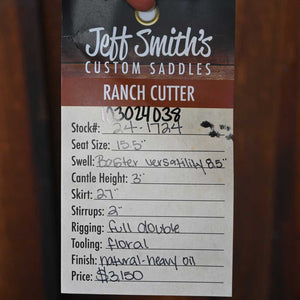 Jeff Smith's
CUSTOM SADDLES
RANCH CUTTER
103024038
Stock#: 24-1724
Seat Size: 15.5"
Swell: Baxter versatility 8.5"
Cantle Height: 3"
Skirt: 27"
Stirrups: 2"
Rigging: full double
Tooling: floral
Finish: natural-heavy oil
Price: $3,150